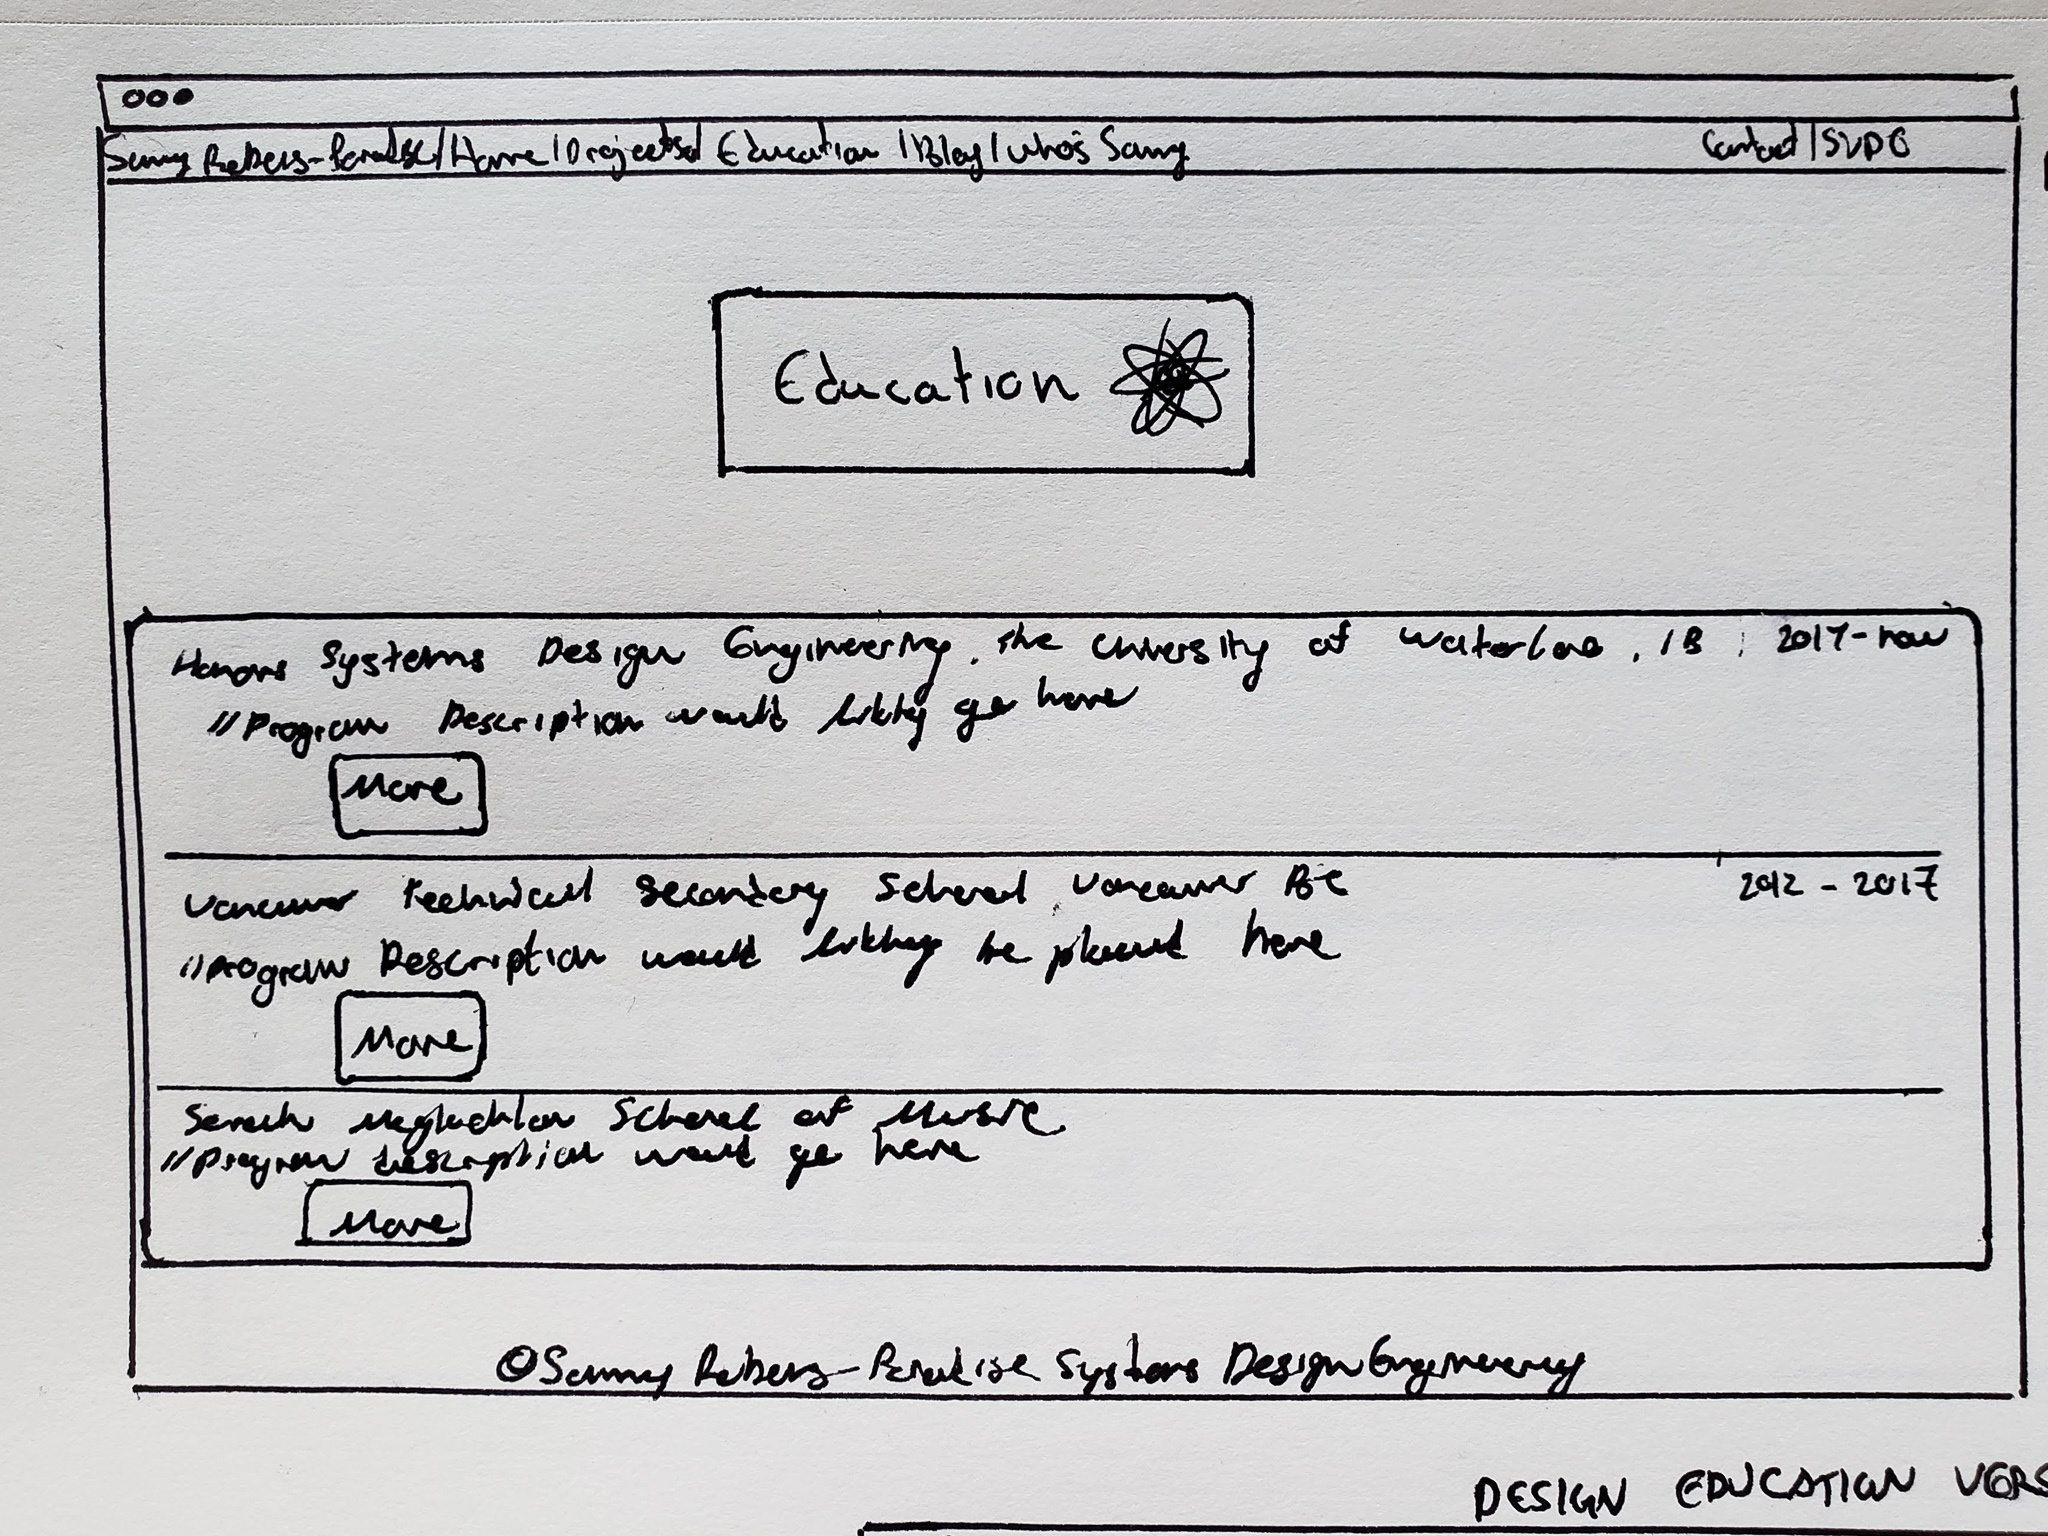 Sammy Robens-Paradise | Home | Projects | Education | Blog | Who's Sammy
Contact | SVDG
Education
Honors Systems Design Engineering, The University of Waterloo, 1B | 2017-now
//Program Description would likley go here
More
Vancouver Technical Secondary School Vancouver BC 2012 - 2017
//Program Description would likley be placed here
More
Sarah School of Music
//Program description would go here
More
©Sammy Robens-Paradise Systems Design Engineering
DESIGN EDUCATION VERS